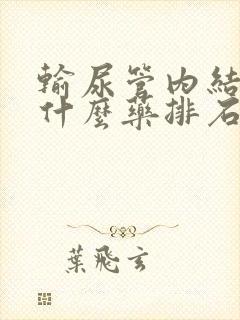 輸尿管內結
什麼藥排石
葉飛玄